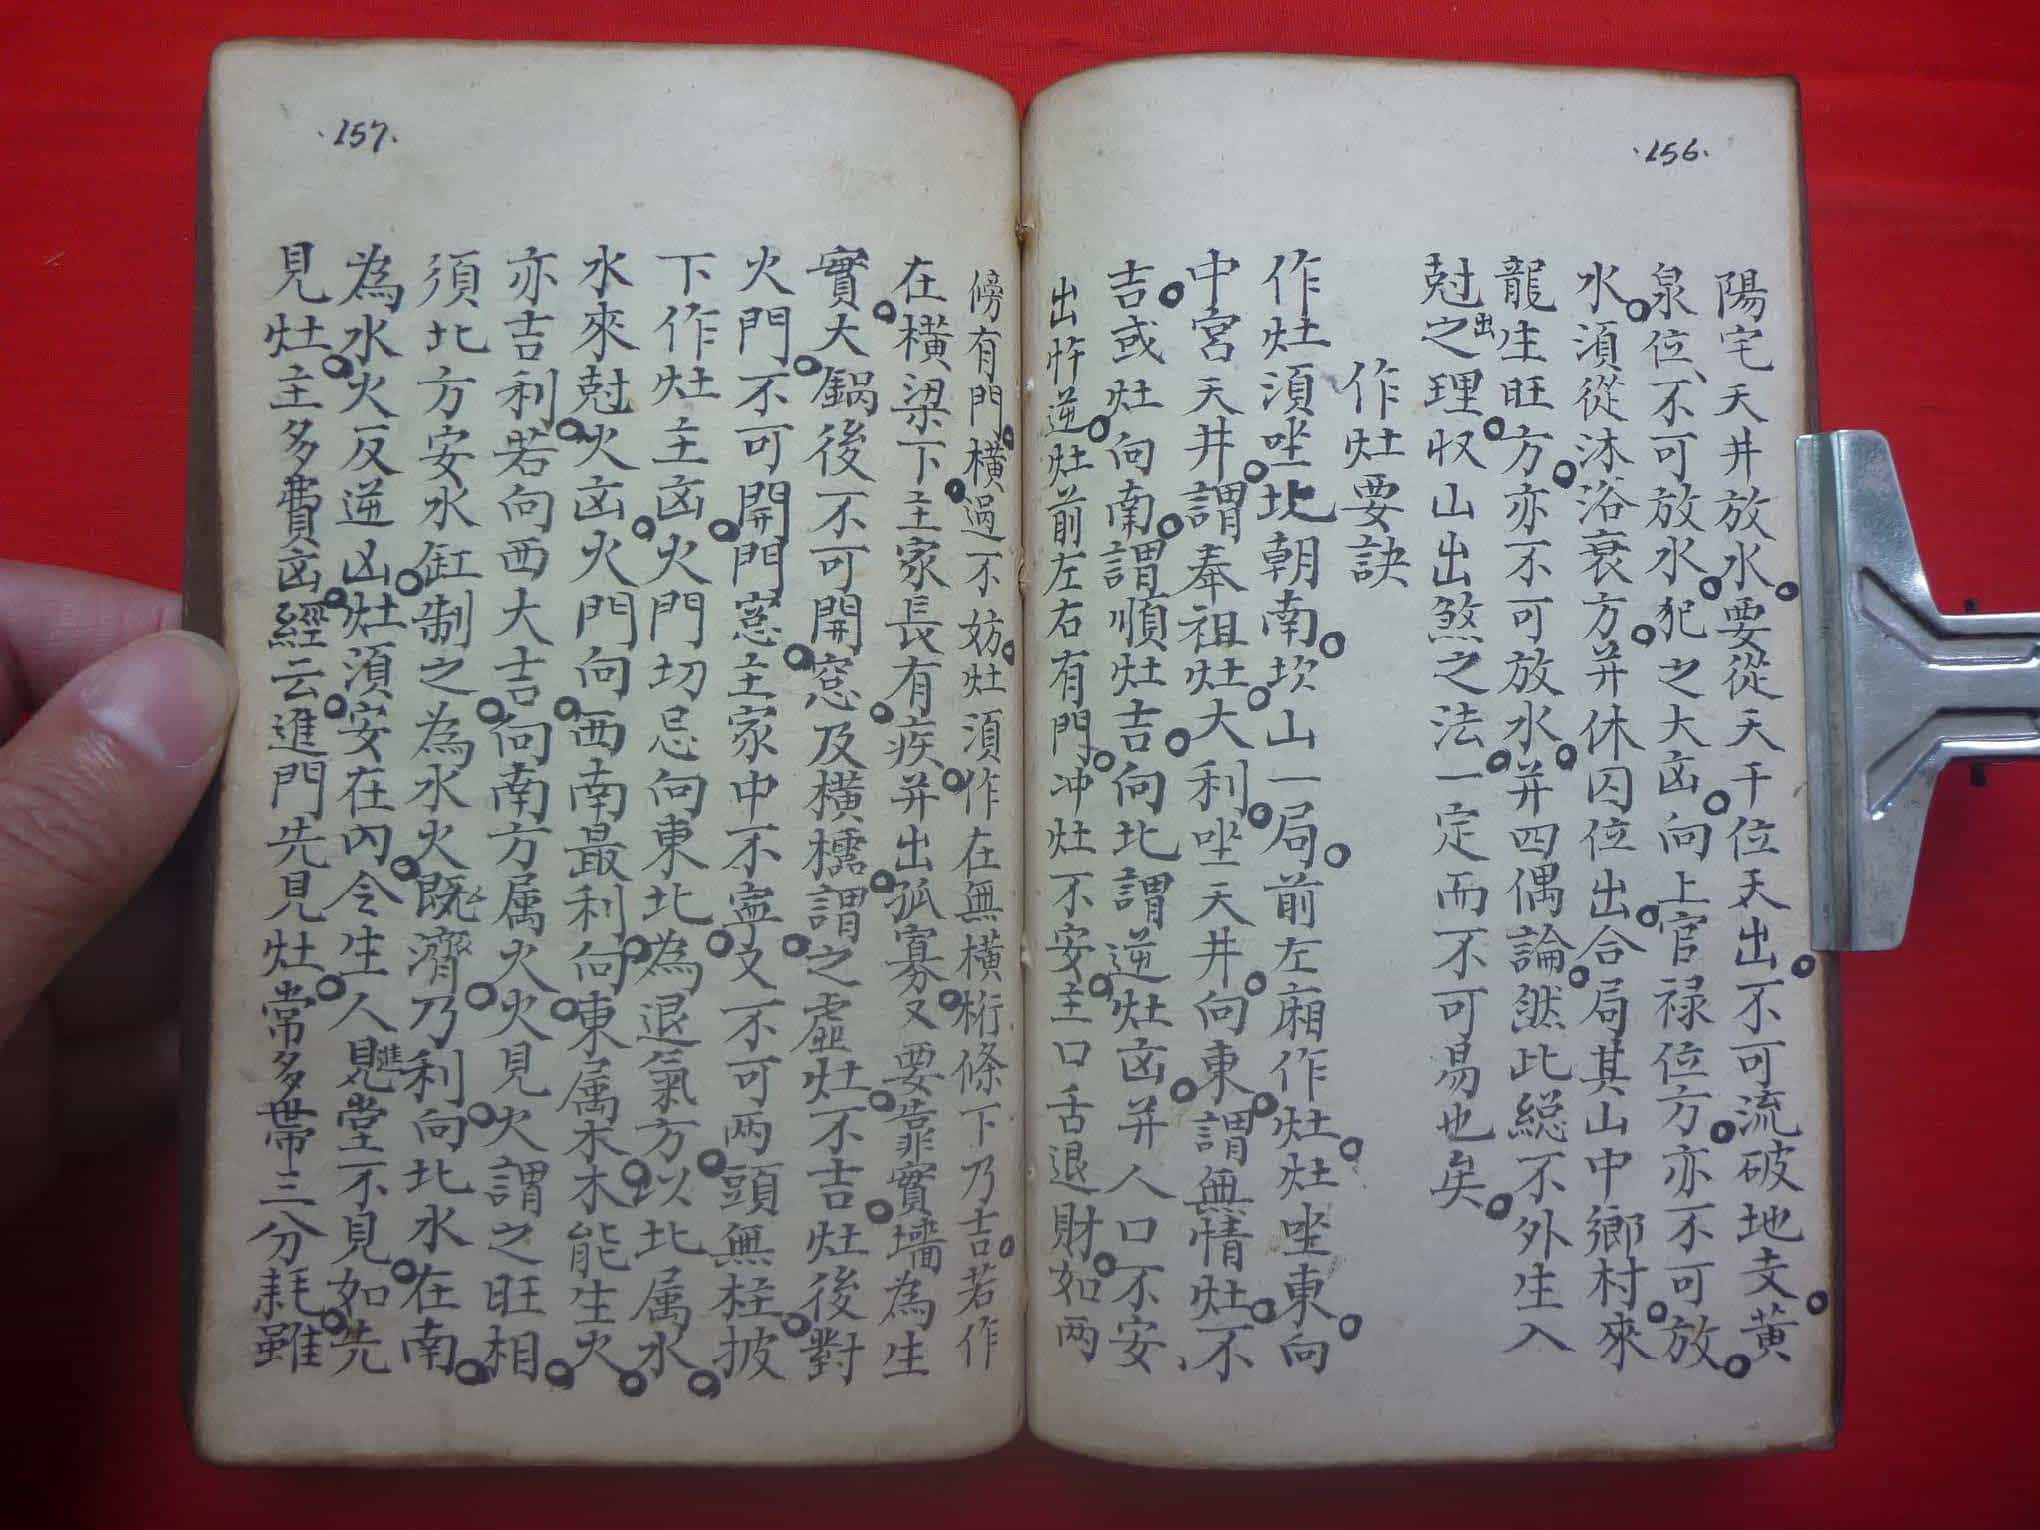 ·156.
陽宅天井放水。要從天干位天出。不可流破地支。黃
泉位、不可放水。犯之大凶。向上官禄位方。亦不可放。
水。須從沐浴衰方。并休囚位出。合局其山中鄉村。來
龍生旺方。亦不可放水。并四偶論。然此総不外生入
尅出之理。収山出煞之法。一定而不可易也矣。
作灶要訣
作灶須坐北朝南。坎山一局。前左廂作灶。灶坐東。向
中宮天井。謂奉祖灶。大利。坐天井。向東。謂無情灶。不
吉。或灶向南。謂順灶吉。向北謂逆灶凶。并人口不安、
出忤逆。灶前左右有門。冲灶不安。主口舌退財。如两
傍有門。橫過不妨。灶須作在無橫桁條下乃吉。若作
在。橫梁下主家長有疾。并出孤寡。又要靠實墻為生
實。大鍋後不可開窓。及橫檽。謂之虛灶。不吉。灶後對
火門。不可開門窓。主家中不寧。又不可两頭無柱。披
下作灶主凶。火門切忌向東北。為退氣方。以北属水。
水來尅火凶。火門向西南最利。向東属木。木能生火。
亦吉利。若向西大吉。向南方属火。火見火謂之旺相。
須北方安水缸制之。為水火既濟。乃利。向北水。在南。
為水火反逆凶。灶須安在內。令生人進見堂不見。如先
見灶。主多費凶。經云。進門先見灶。常多帶三分耗。雖
·157.